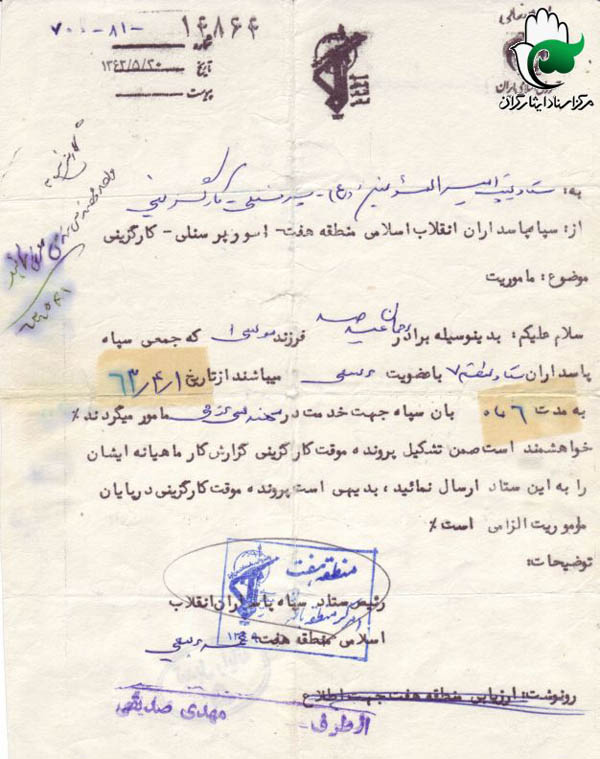 ۱۴۸۶۴
۷۰۰-۸۱-
شماره
تاریخ ۱۳۶۲/۵/۲۰
پیوست
مرکز اسناد ایثارگران
به: ستاد تیپ امیرالمؤمنین (ع) - پرسنلی - کارگزینی
از: سپاه پاسداران انقلاب اسلامی منطقه هفت - امور پرسنلی - کارگزینی
موضوع: ماموریت
سلام علیکم: بدینوسیله برادر فرزند موسی که جمعی سپاه
پاسداران ستاد منطقه ۷ با عضویت میباشند از تاریخ ۶۳/۴/۱
به مدت ۶ ماه بان سپاه جهت خدمت در مامور میگردند ٪
خواهشمند است ضمن تشکیل پرونده موقت کارگزینی گزارش کار ماهیانه ایشان
را به این ستاد ارسال نمائید، بدیهی است پرونده موقت کارگزینی در پایان
ماموریت الزامی است ٪
توضیحات:
منطقه هفت
رئیس ستاد سپاه پاسداران انقلاب
اسلامی منطقه هفت
رونوشت: ارزیابی منطقه هفت جهت اطلاع
از طرف - مهدی صدیقی